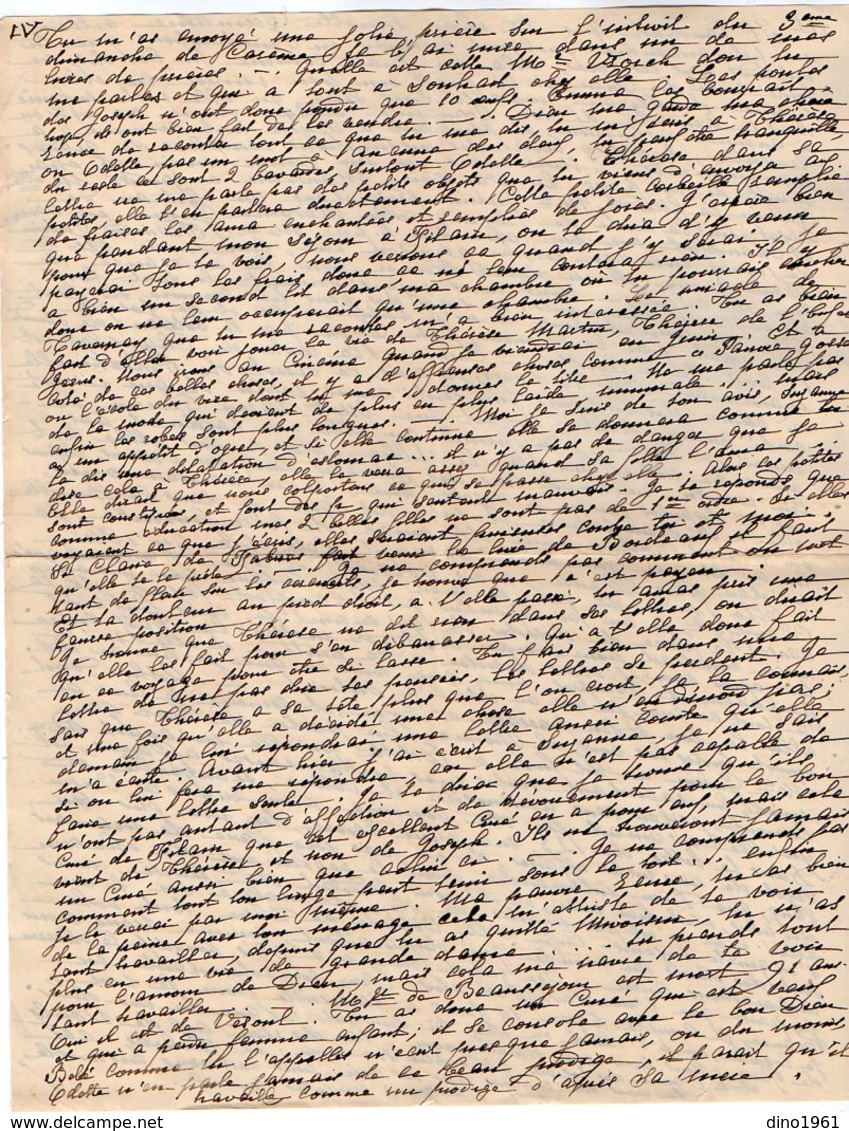 IV Tu m'as envoyé une jolie prière sur l'autel du 3eme
dimanche de Carême je l'ai mise dans un de mes
livres de prières. - Quelle est cette Me Vtorch don tu
me parles et qui a tout à souhait chez elle. Les poules
de Joseph n'ont donc pondu que 10 œufs. Emma les bourrait
trop, ils ont bien fait de les vendre. - Dieu me garde ma chère
de raconter tout ce que tu me dis tu en serais à Thérèse
ou Odette, pas un mot à aucune des deux, tu peux être tranquille,
du reste ce sont 2 bavardes, surtout Odette. Thérèse dans sa
lettre ne me parle pas des petits objets que tu viens d'envoyer aux
petites, elle t'en parlera directement. Cette petite corbeille remplie
de fraises les aura enchantées et remplies de joies. J'espère bien
que pendant mon séjour à Filain, on te dira d'y venir
pour que je te voie, nous verrons ça quand j'y serai, je
payerai tous les frais donc ça ne leur coûtera rien. Il y
a bien un second lit dans ma chambre où tu pourrais coucher
donc on ne leur occuperait qu'une chambre. Le miracle de
Tavernay que tu me racontes m'a bien intéressée. Tu as bien
fait d'aller voir jouer la vie de Thérèse Martin, Thérèse de l'Enfant
Jésus. Nous irons au Cinéma quand je viendrai en Juin. Et à
côté de ces belles choses, il y a d'affreuses choses comme "Pauvre gosse
ou l'école du vice dont tu me donnes le titre. Ne me parle pas
de la mode qui devient de plus en plus laide immorale... mais
enfin les robes sont plus longues. - Moi je suis de ton avis, Suzanne
a un appétit d'ogre, et si elle continue elle se donnera comme tu
le dis une dilatation d'estomac... il n'y a pas de danger que je
dise cela à Thérèse, elle le verra assez quand sa fille l'aura.
Elle dirait que nous colportons ce qui se passe chez elle. Alors les petites
sont constipées, et font des p. qui sentent mauvais. Je te réponds que
comme éducation mes 2 belles filles ne sont pas de 1er ordre. Si elles
voyaient ce que j'écris, elles seraient furieuses contre toi et moi.
St Claire de fait venir le livre de Bordeaux il faut
qu'elle te le prête. - Je ne comprends pas comment on met
tant de fleurs sur les cercueils, je trouve que c'est payen.
Et ta douleur au pied droit, a t'elle passé, tu auras pris une
fausse position.
Je trouve que Thérèse ne dit rien dans ses lettres, on dirait
qu'elle les fait pour s'en débarrasser. Qu'a t'elle donc fait
en ce voyage pour être si lasse. Tu fais bien dans une
lettre de ne pas dire tes pensées, les lettres se perdent. Je
sais que Thérèse a sa tête plus que l'on croit, je la connais,
et une fois qu'elle a décidé une chose elle n'en démord pas;
demain je lui répondrai une lettre aussi courte qu'elle
m'a écrite. Avant hier j'ai écrit à Suzanne, je ne sais
si on lui fera me répondre, car elle n'est pas capable de
faire une lettre seule. Je te dirai que je trouve qu'ils
n'ont pas autant d'affection et de dévouement pour le bon
Curé de Filain que cet excellent Curé en a pour eux, mais cela
vient de Thérèse et non de Joseph. Ils ne trouveront jamais
un Curé aussi bien que celui-ci. - Je ne comprends pas
comment tout ton linge peut tenir sous le toit... enfin
je le verrai par moi même. Ma pauvre Zence, tu as bien
de la peine avec ton ménage cela m'attriste de te voir
tant travailler, depuis que tu as quitté Miroison, tu n'as
plus eu une vie de grande dame... tu prends tout
pour l'amour de Dieu, mais cela me navre de te voir
tant travailler. - Mr de Beausséjour est mort 91 ans.
Oui il est de Vesoul. Tu as donc un Curé qui est veuf
et qui a perdu femme enfant; il se console avec le bon Dieu
Bébé comme tu l'appelles n'écrit presque jamais, ou du moins
Odette n'en parle jamais de ce beau prodige, il paraît qu'il
travaille comme un prodige d'après sa mère.
dino1961